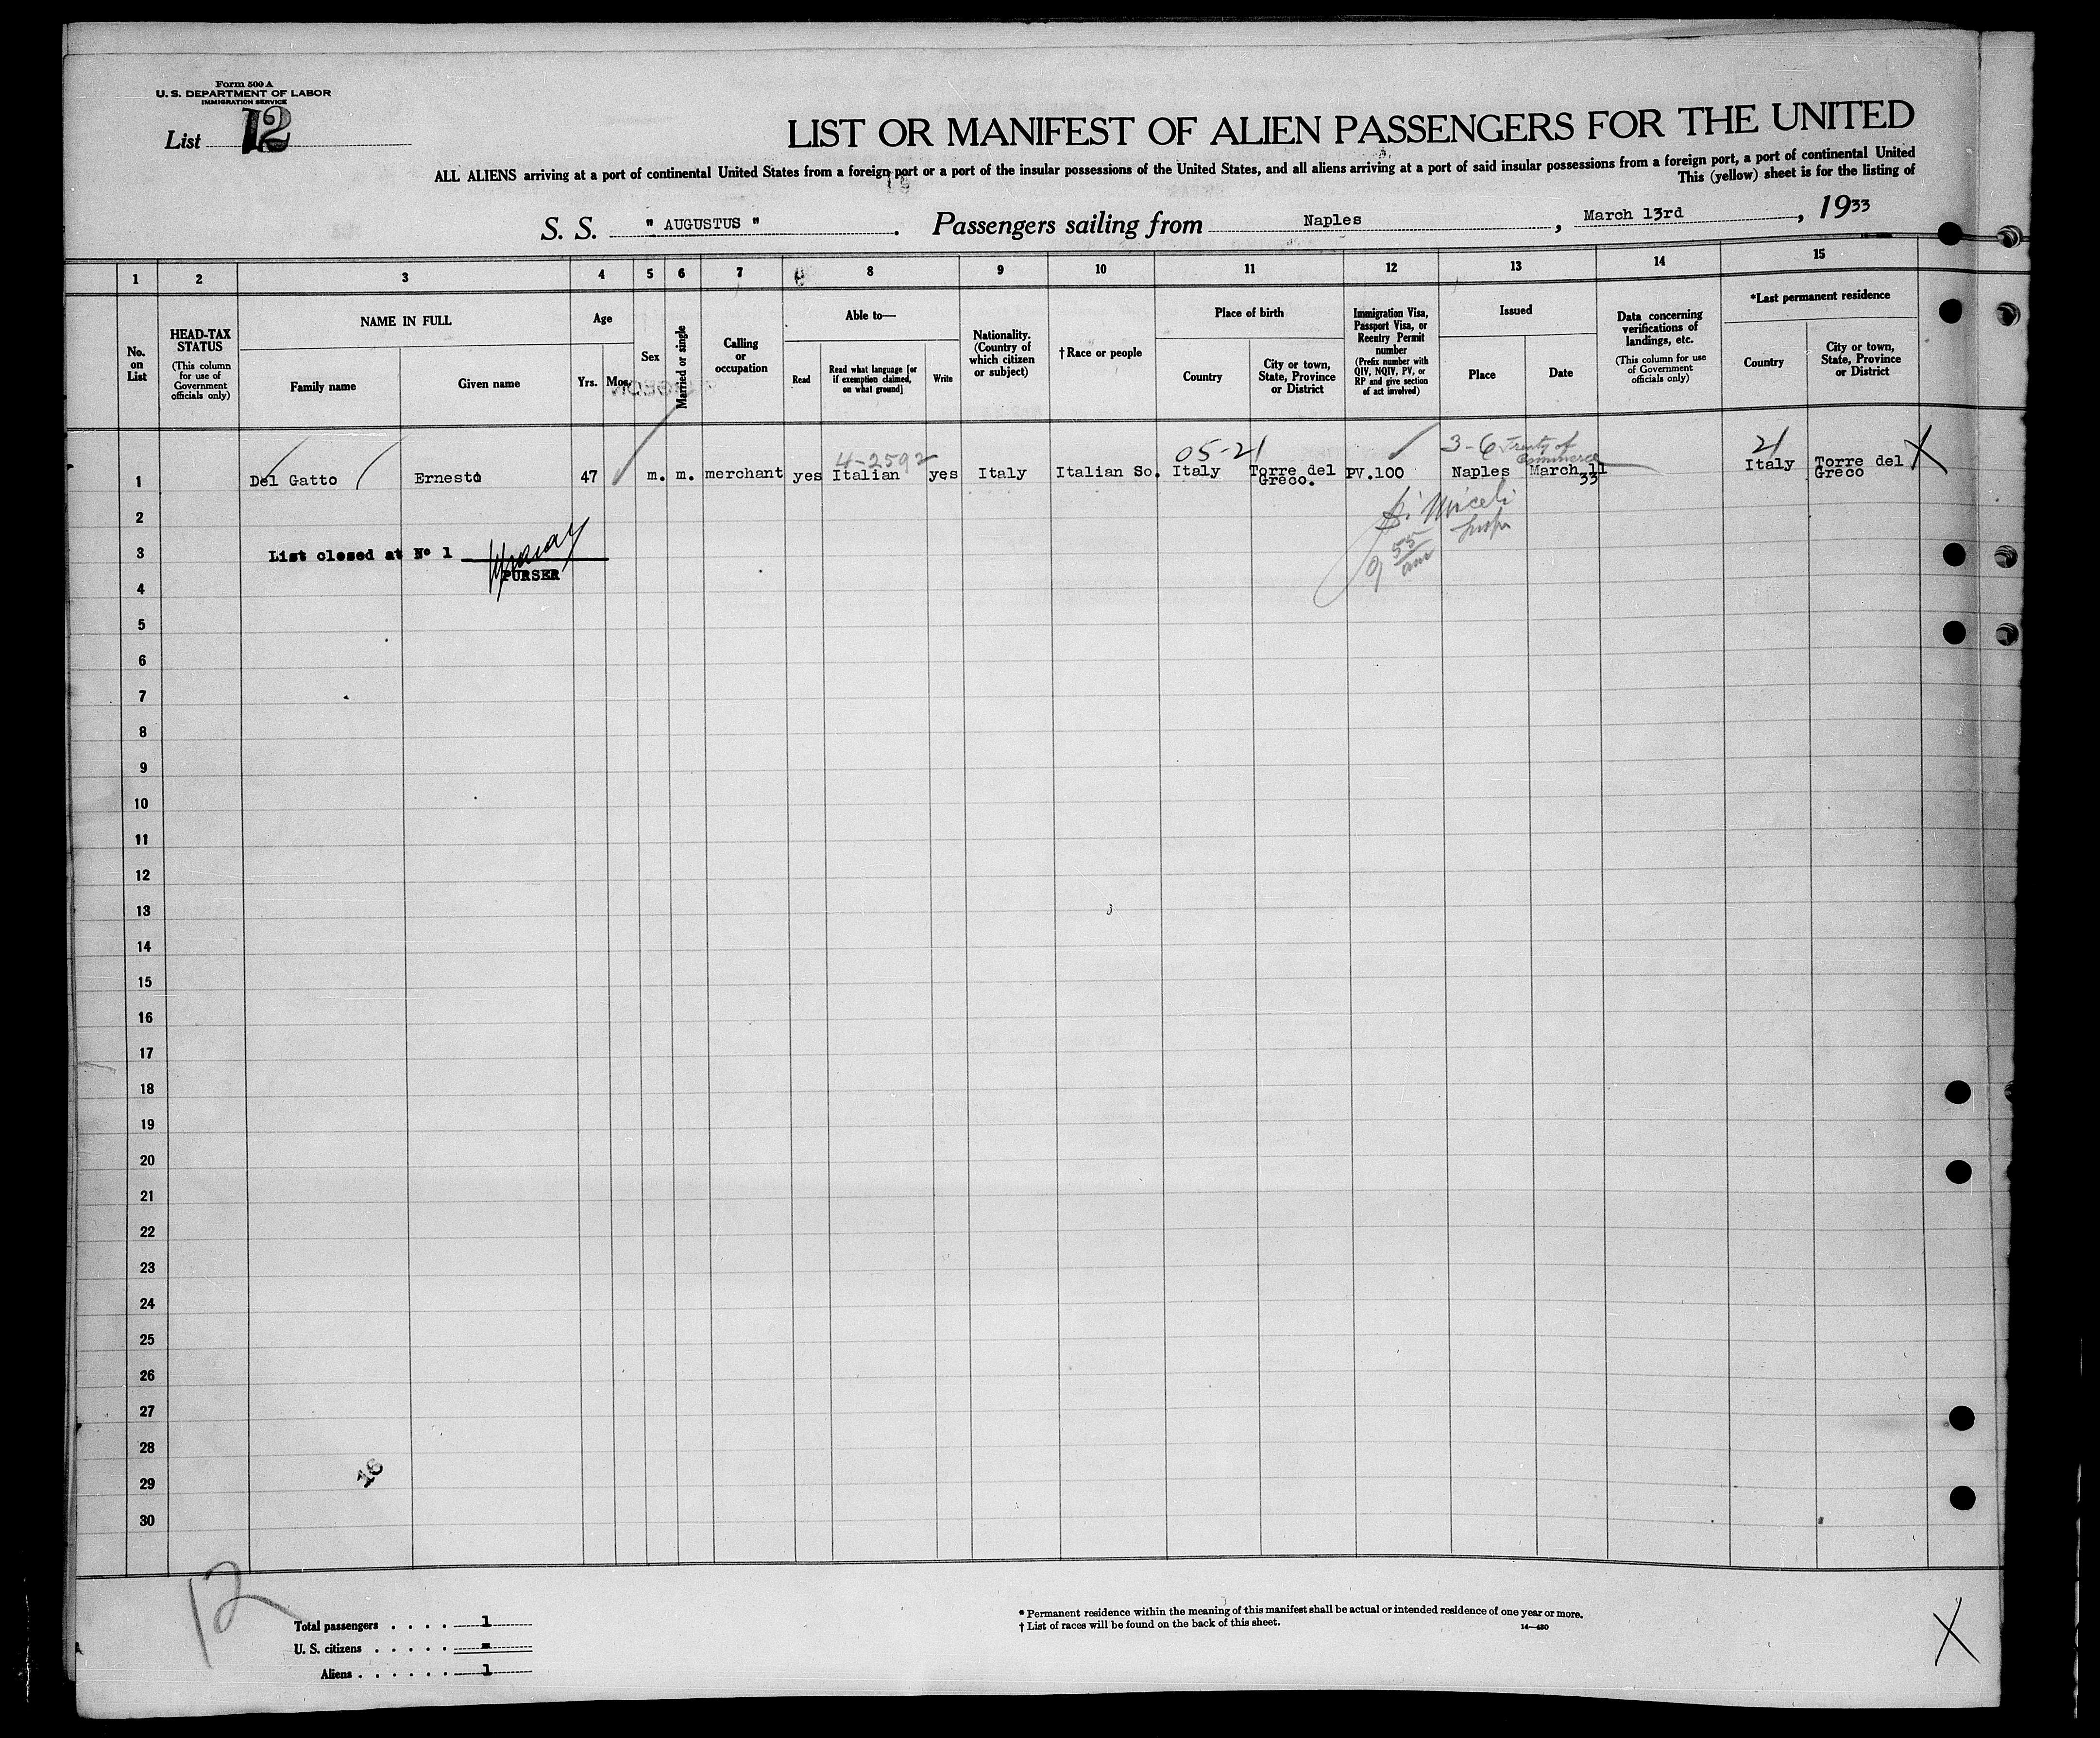 Form 500 A
U. S. DEPARTMENT OF LABOR
IMMIGRATION SERVICE
List 12
LIST OR MANIFEST OF ALIEN PASSENGERS FOR THE UNITED
ALL ALIENS arriving at a port of continental United States from a foreign port or a port of the insular possessions of the United States, and all aliens arriving at a port of said insular possessions from a foreign port, a port of continental United
This (yellow) sheet is for the listing of
S. S. " AUGUSTUS " . Passengers sailing from Naples , March 13rd , 1933
1 2 3 4 5 6 7 8 9 10 11 12 13 14 15
No. on List
HEAD-TAX STATUS
(This column for use of Government officials only)
NAME IN FULL
Family name
Given name
Age
Yrs. Mos.
Sex
Married or single
Calling or occupation
Able to—
Read
Read what language [or if exemption claimed, on what ground]
Write
Nationality. (Country of which citizen or subject)
† Race or people
Place of birth
Country
City or town, State, Province or District
Immigration Visa, Passport Visa, or Reentry Permit number
(Prefix number with QIV, NQIV, PV, or RP and give section of act involved)
Issued
Place
Date
Data concerning verifications of landings, etc.
(This column for use of Government officials only)
*Last permanent residence
Country
City or town, State, Province or District
4-2592 05-21 3-6 Treaty of Commerce 21 X
1 Del Gatto Ernesto 47 m. m. merchant yes Italian yes Italy Italian So. Italy Torre del Greco. PV.100 Naples March 11 33 Italy Torre del Greco
2
3 List closed at No 1
PURSER
9 55 am
4
5
6
7
8
9
10
11
12
13
14
15
16
17
18
19
20
21
22
23
24
25
26
27
28
29
30
16
12
Total passengers . . . . 1
U. S. citizens . . . . . -
Aliens . . . . . . 1
* Permanent residence within the meaning of this manifest shall be actual or intended residence of one year or more.
† List of races will be found on the back of this sheet.
14—430
X